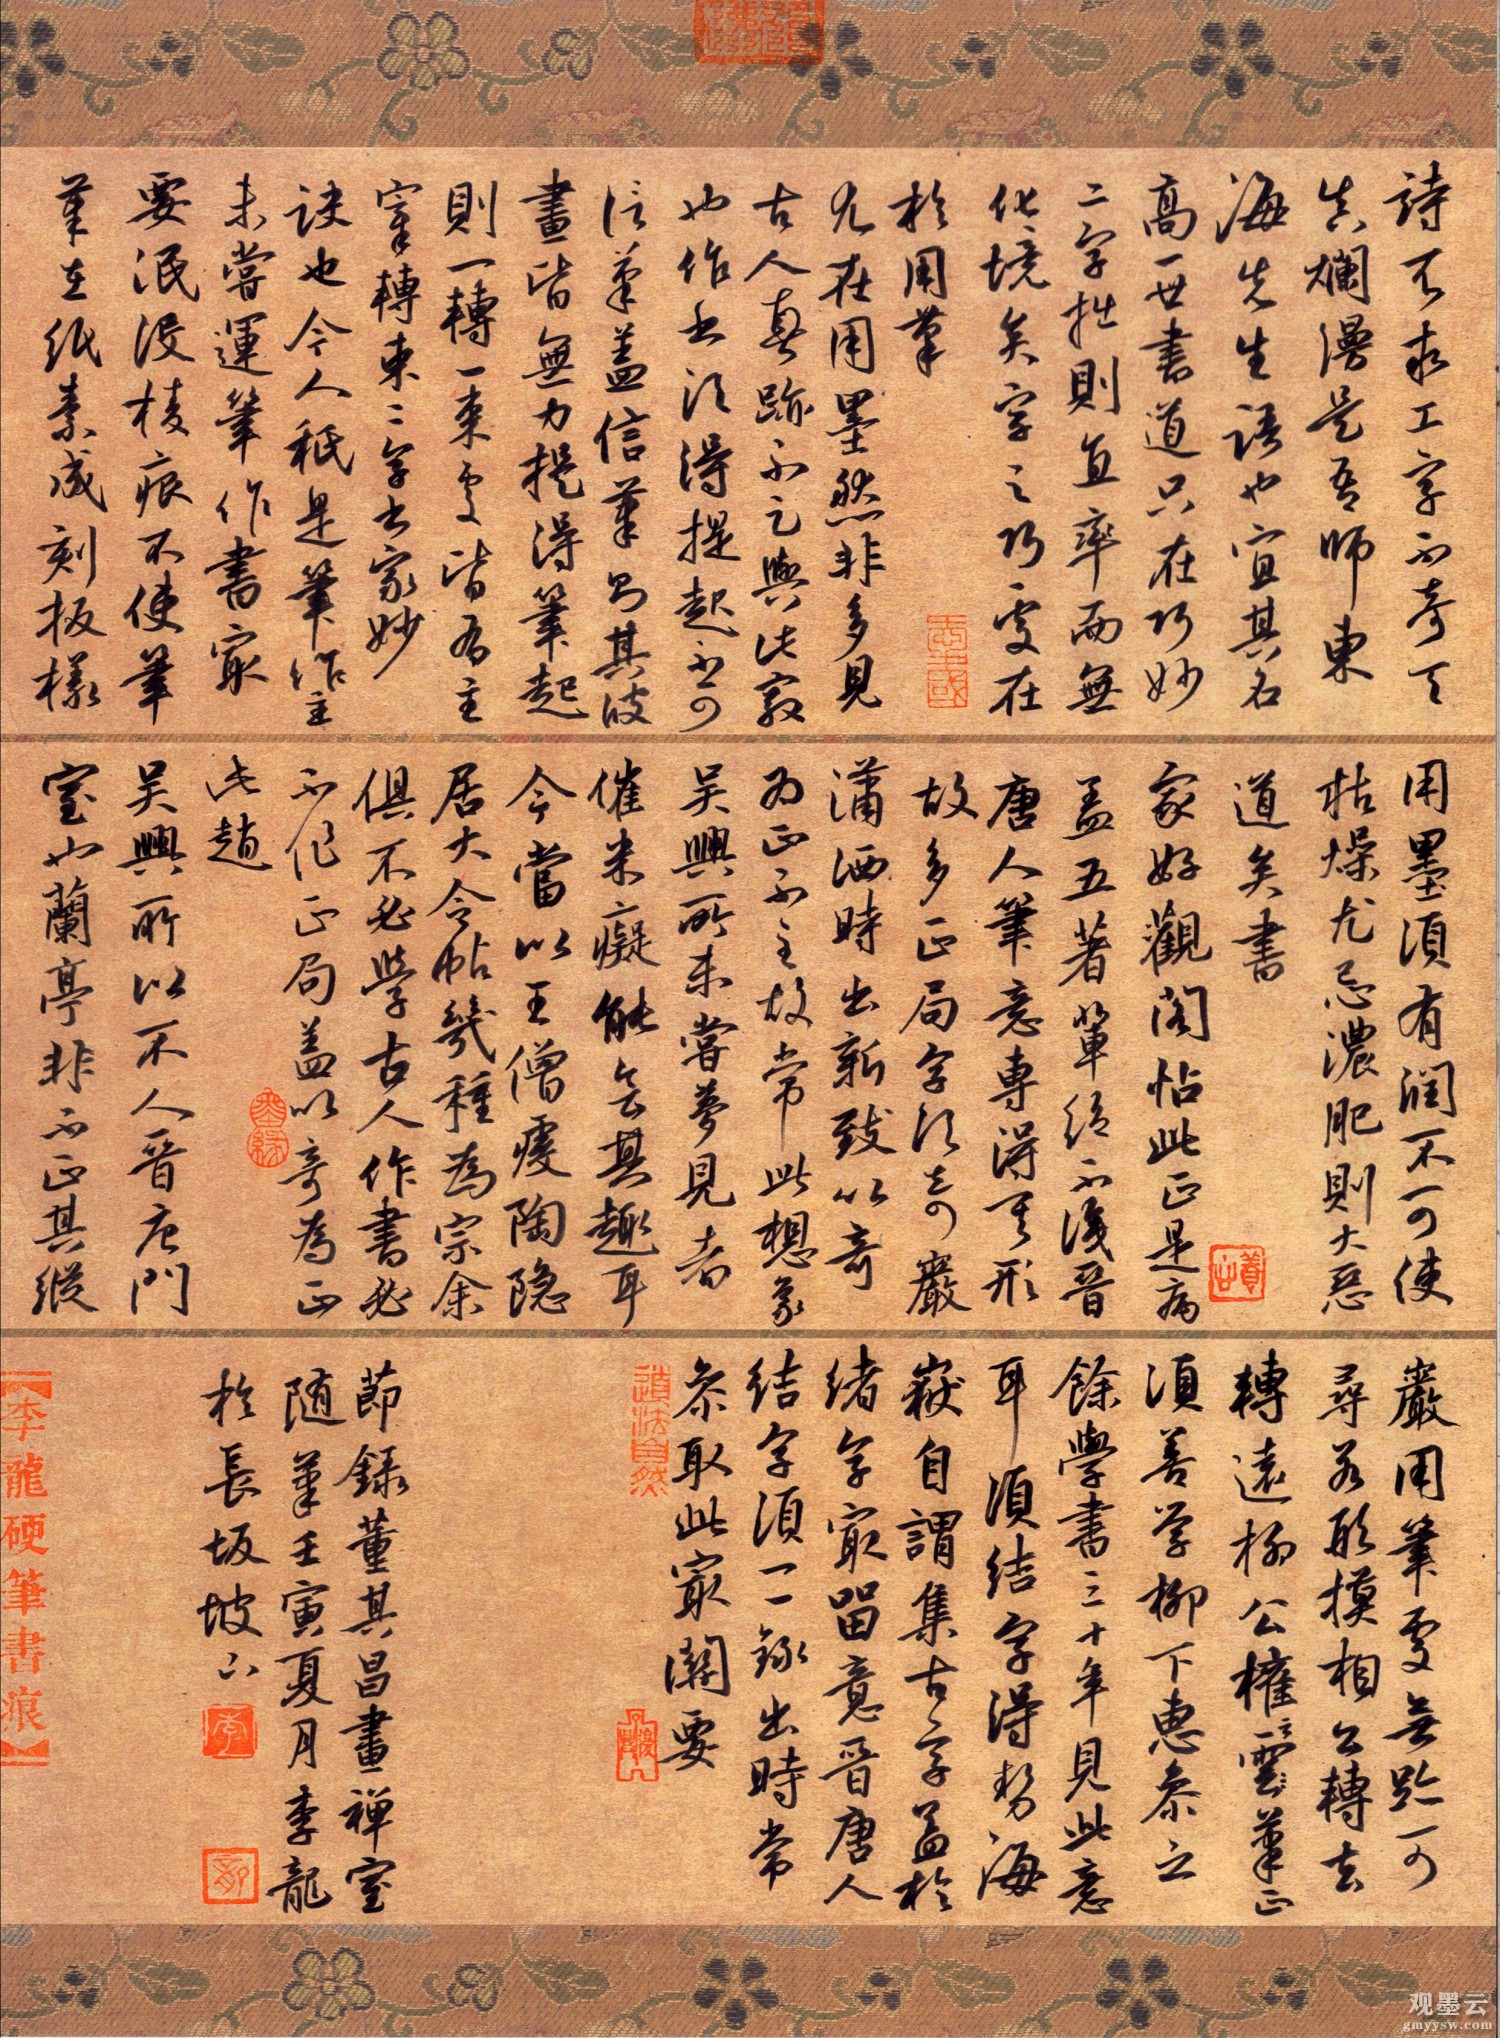 詩不求工字不奇天
真爛漫是吾師東
海先生語也宜其名
高一世書道只在巧妙
二字拙則直率而無
化境矣字之巧處在
於用筆
尤在用墨然非多見
古人真跡不足與此竅
也作書須得提起不可
信筆蓋信筆則其波
畫皆無力提得筆起
則一轉一束處皆有主
宰轉束二字書家妙
訣也今人秖是筆作主
未嘗運筆作書最
要泯没棱痕不使筆
筆在紙素成刻板樣
用墨須有潤不可使
枯燥尤忌濃肥則大惡
道矣書
家好觀閣帖此正是病
蓋王著輩絕不識晉
唐人筆意專得其形
故多正局字須奇嚴
瀟洒時出新致以奇
為正不主故常此想象
吴興所未嘗夢見者
惟米癡能会其趣耳
今當以王僧虔陶隐
居大令帖幾種為宗余
俱不必學古人作書必
不作正局蓋以奇為正
此趙
吴興所以不入晉唐門
室也蘭亭非不正其縱
嚴用筆處無跡可
尋若形模相似轉去
轉遠柳公權雲筆正
須善學柳下惠参之
餘學書三十年見此意
耳須結字得勢海
嶽自謂集古字蓋於
绪字最留意晉唐人
结字須一一錄出時常
参取此最關要
節録董其昌畫禪室
随筆壬寅夏月李龍
於長坂坡下
道法自然
【李龍硬筆書痕】
观墨云
gmyysw.com